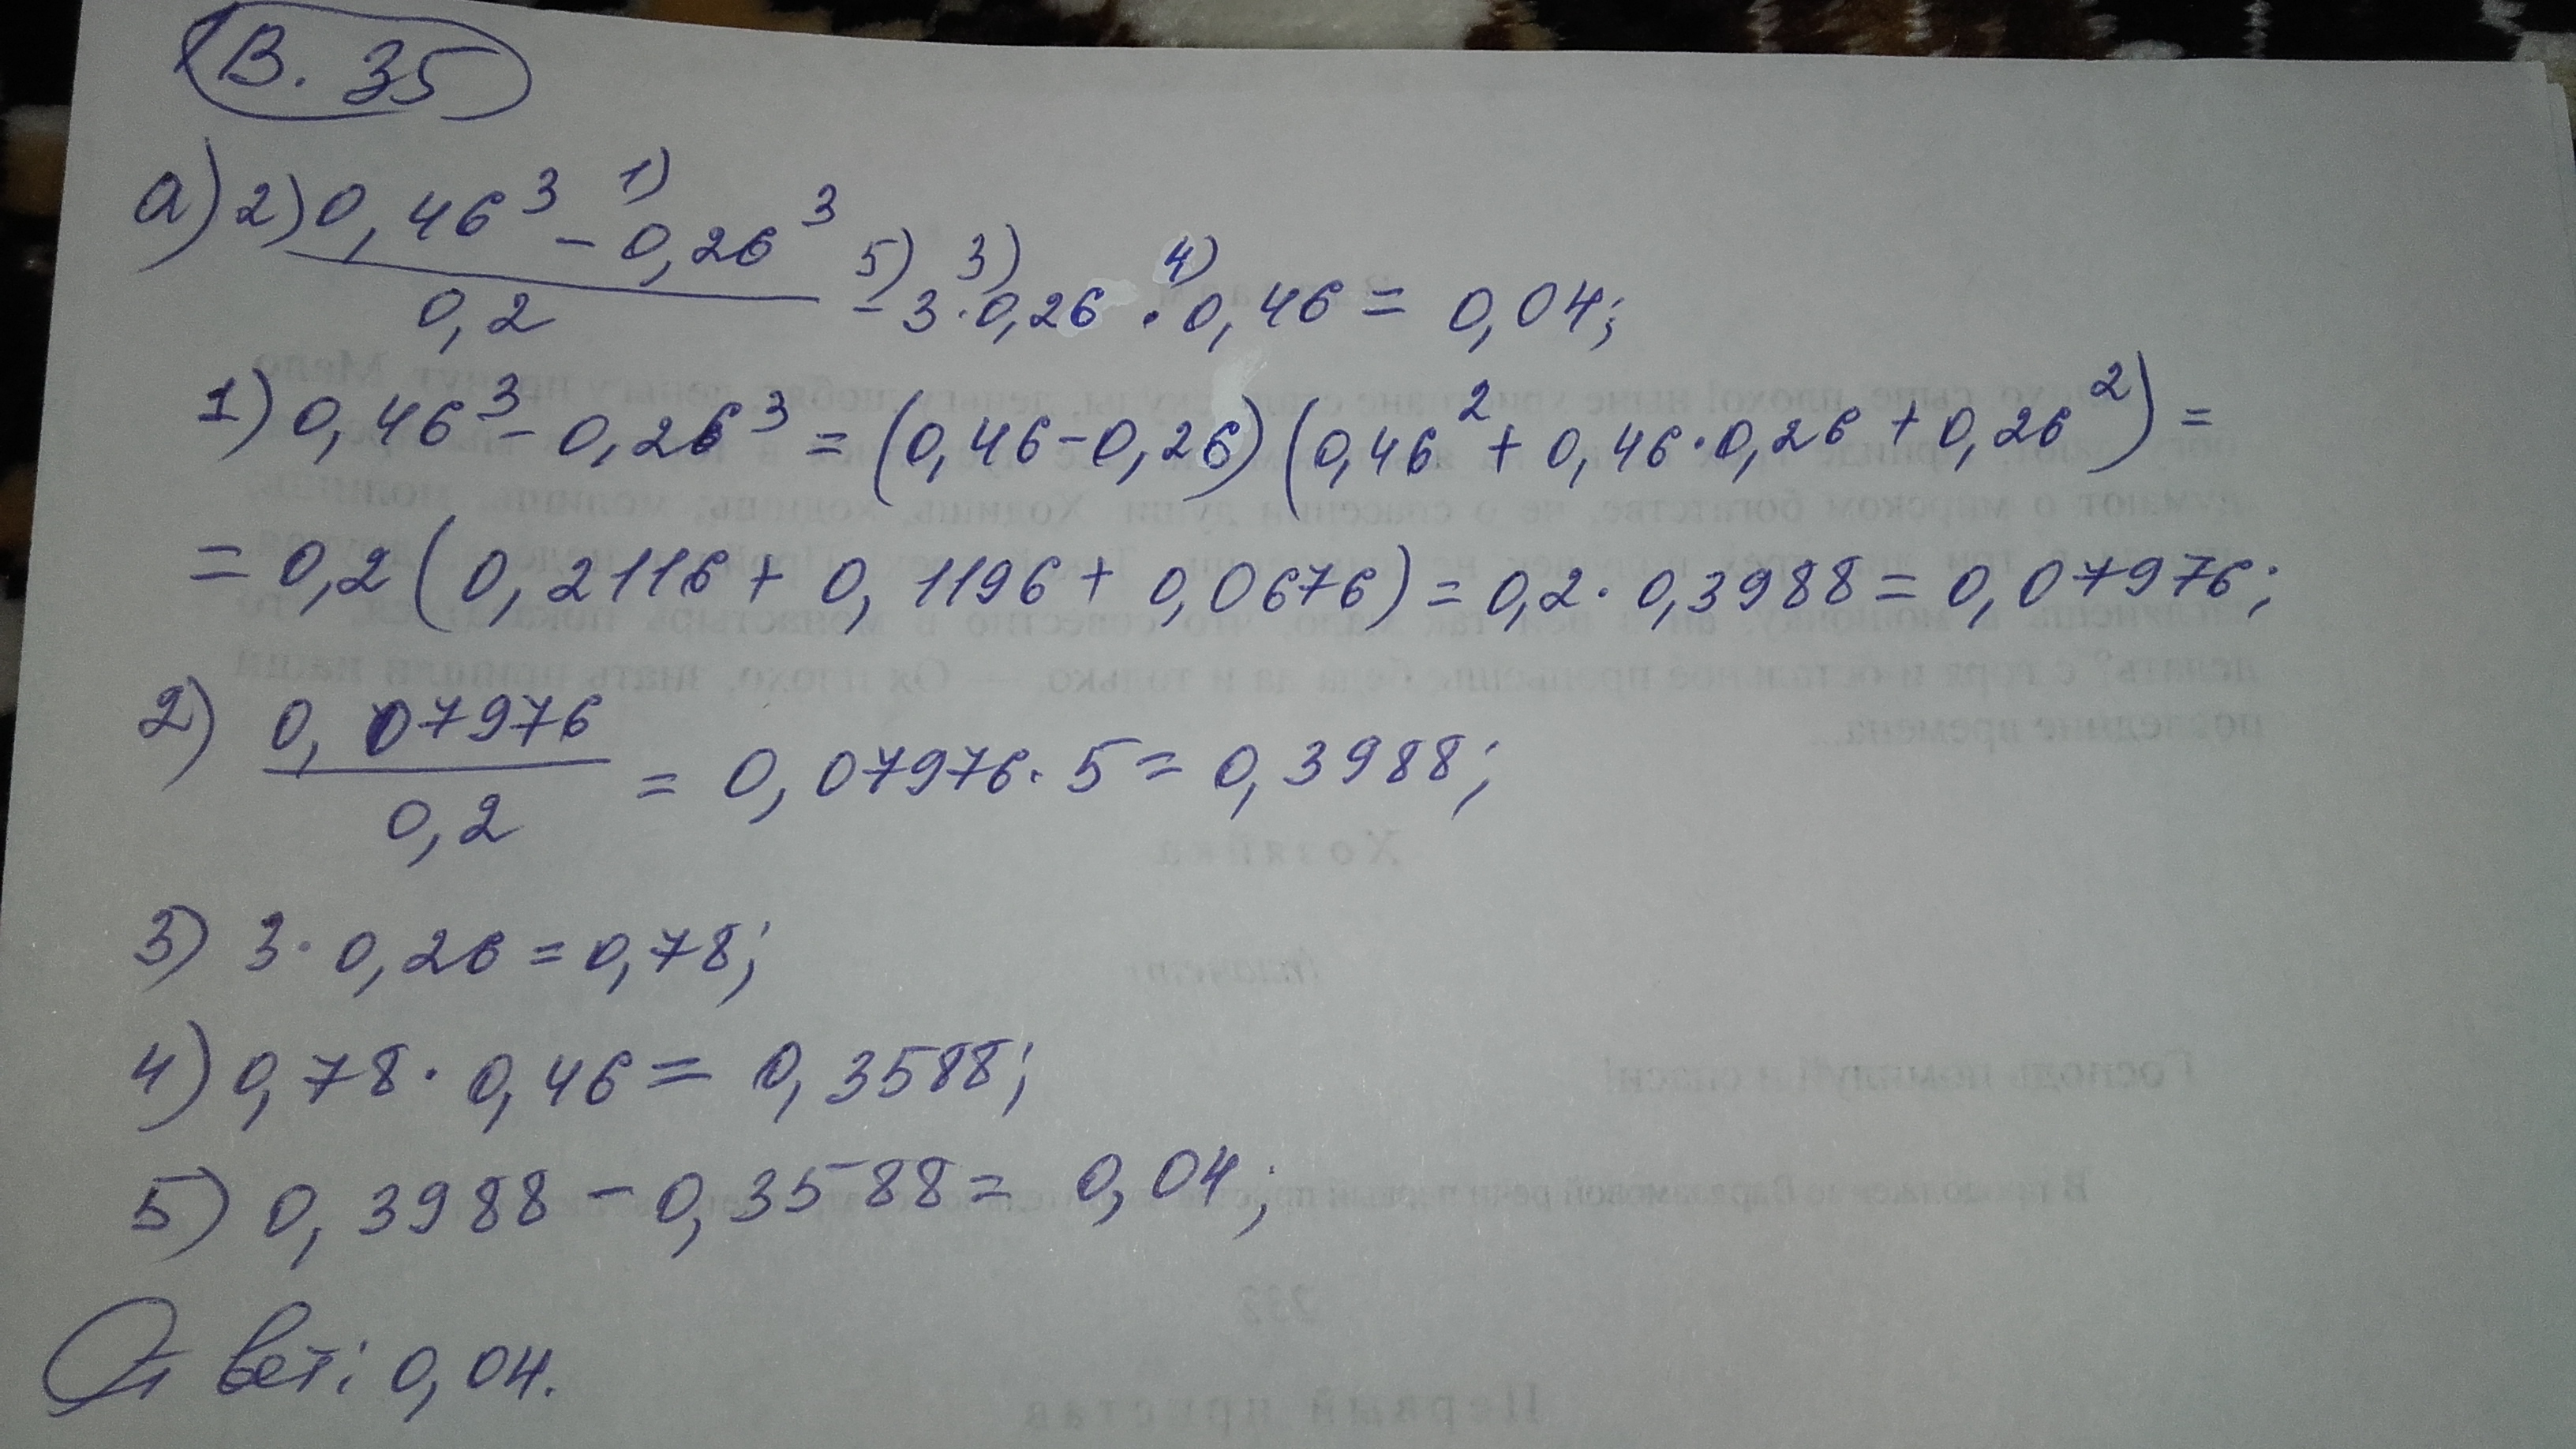 В. 35
а) 2) 0,46³ 1) - 0,26³ 5) 3) 4)
0,2 - 3·0,26·0,46 = 0,04;
1) 0,46³ - 0,26³ = (0,46-0,26)(0,46² + 0,46·0,26 + 0,26²) =
= 0,2(0,2116 + 0,1196 + 0,0676) = 0,2·0,3988 = 0,07976;
2) 0,07976
0,2 = 0,07976·5 = 0,3988;
3) 3·0,26 = 0,78;
4) 0,78·0,46 = 0,3588;
5) 0,3988 - 0,3588 = 0,04;
Ответ: 0,04.